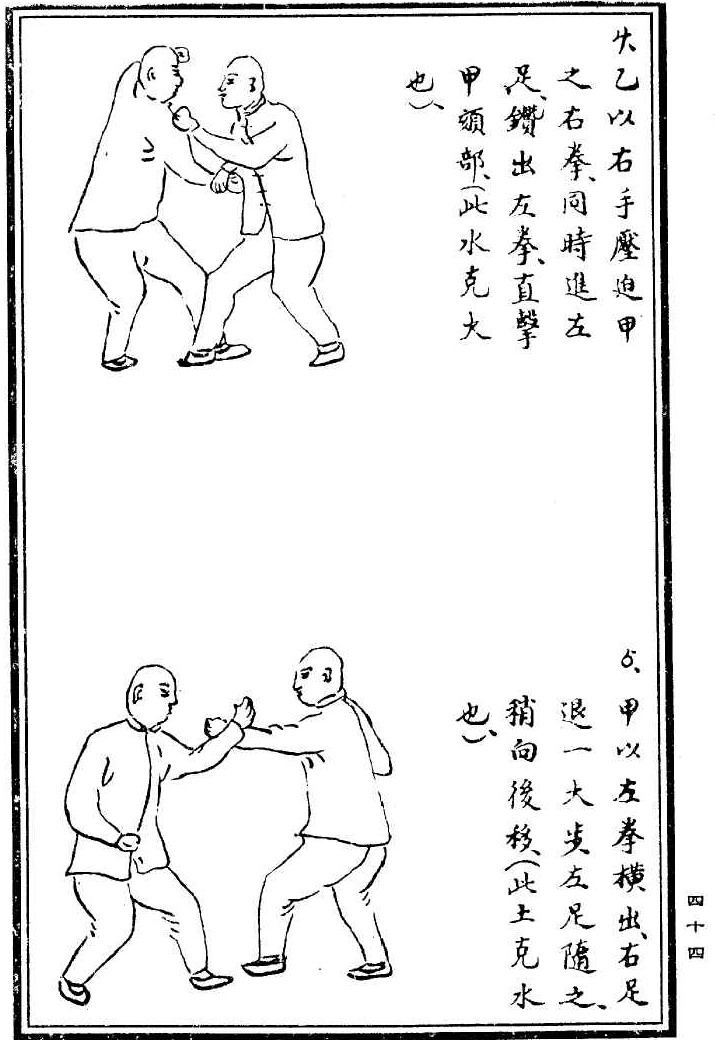 4乙以右手壓迫甲
之右拳、同時進左
足、鑽出左拳、直擊
甲頭部、(此水克火
也)、
5、甲以左拳橫出、右足
退一大步左足隨之、
稍向後移、(此土克水
也)、
四十四